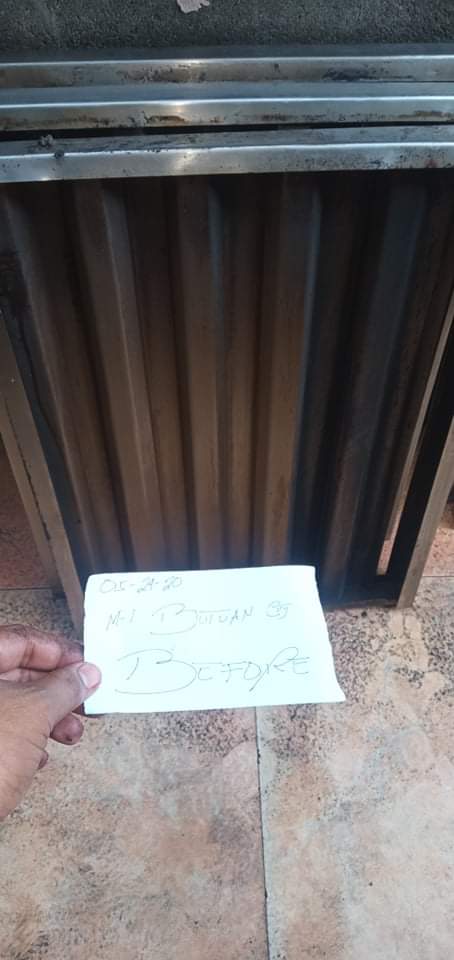 05-29-20
M-1 BUTUAN SJ
BEFORE